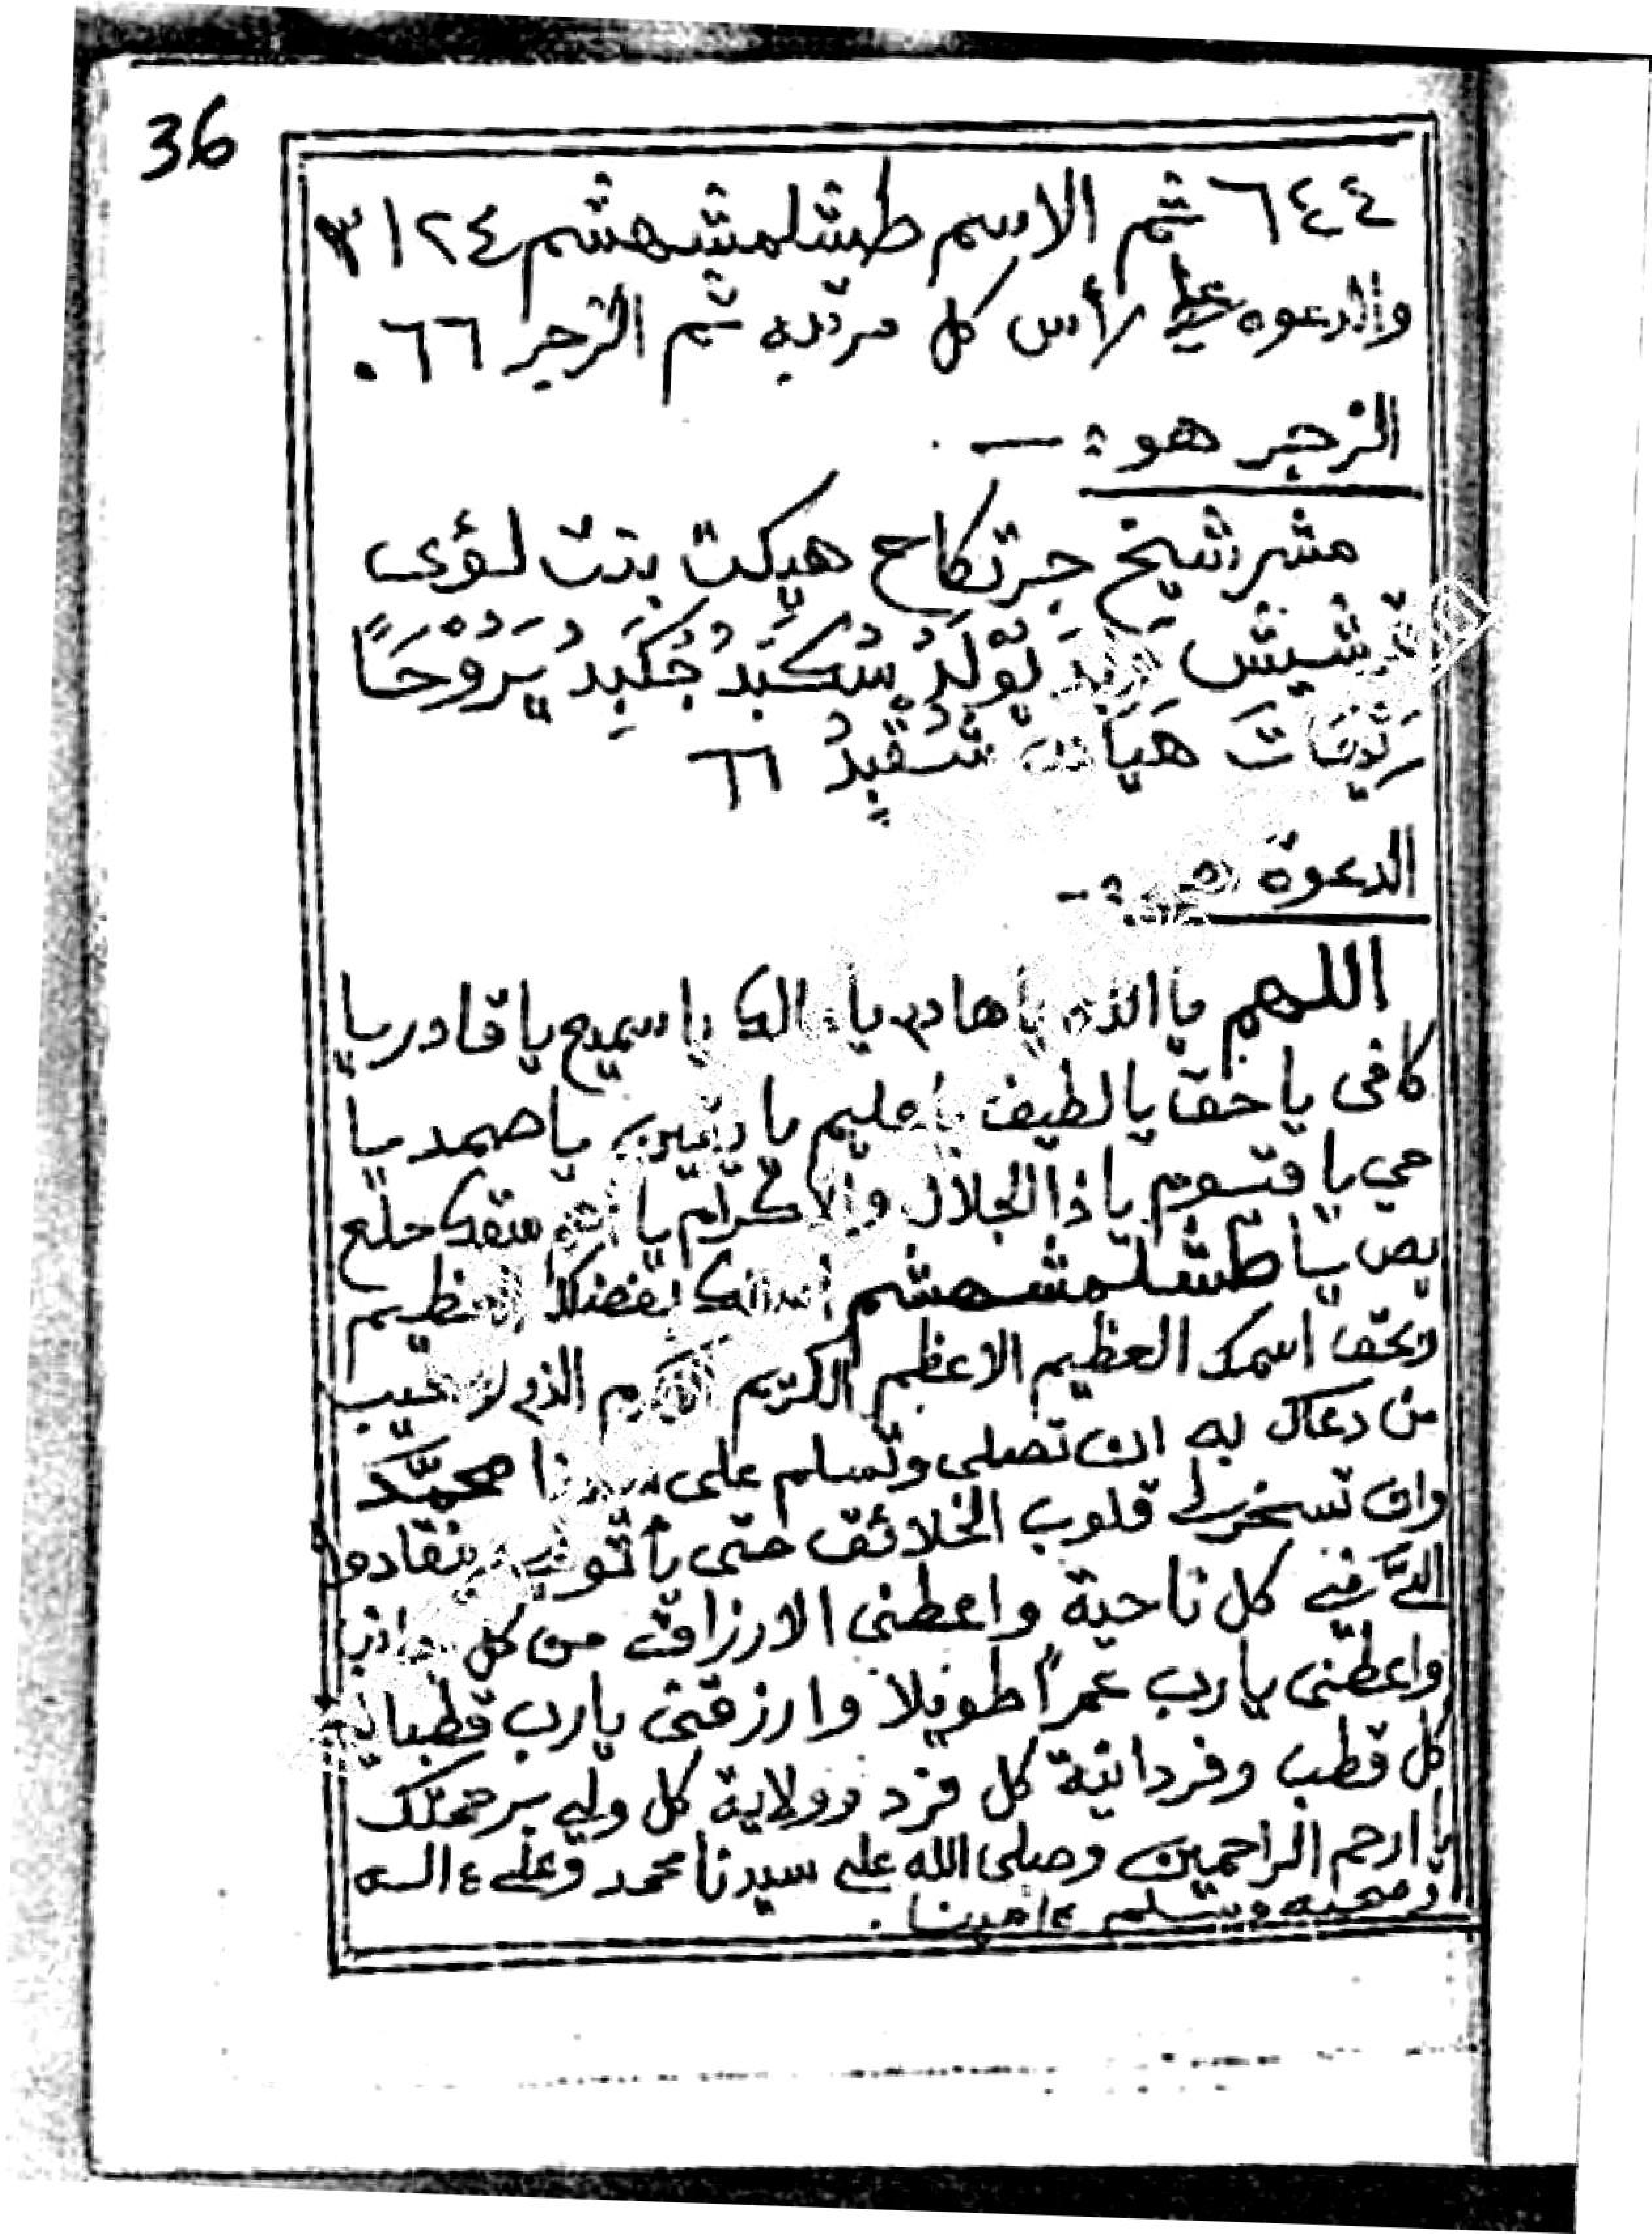 36
٦٤٤ ثم الاسم طشلمشهشم ٣١٢٤
والدعوه على رأس كل مرتبه ثم الزجر ٦٦.
الزجر هو :-
جرتكاح هيكت بنت لؤى
شيش تَوْلَدُ
هَيَاتَ ٦٦
الدعوة :-
اللهم يا الله يا هادى يا يا سميع يا قادر يا
كافى يا حق يا لطيف يا عليم يا يا صمد يا
حي يا قيوم يا ذا الجلال والاكرام يا حلع
يص يا طشلمشهشم اسألك بفضلك العظيم
وبحق اسمك العظيم الاعظم الكريم الاكرم الذى لا يخيب
من دعاك به ان تصلى وتسلم على سيدنا محمَّد
وان تسخر لى قلوب الخلائق حتى يأتونى وينقادوا
اليَّ في كل ناحية واعطنى الارزاق من كل جانب
واعطنى يارب عمراً طويلا وارزقنى يارب قطبانية
كل قطب وفردانية كل فرد وولاية كل ولي برحمتك
يا ارحم الراحمين وصلى الله على سيدنا محمد وعلى ءاله
وصحبه وسلم ءامين.